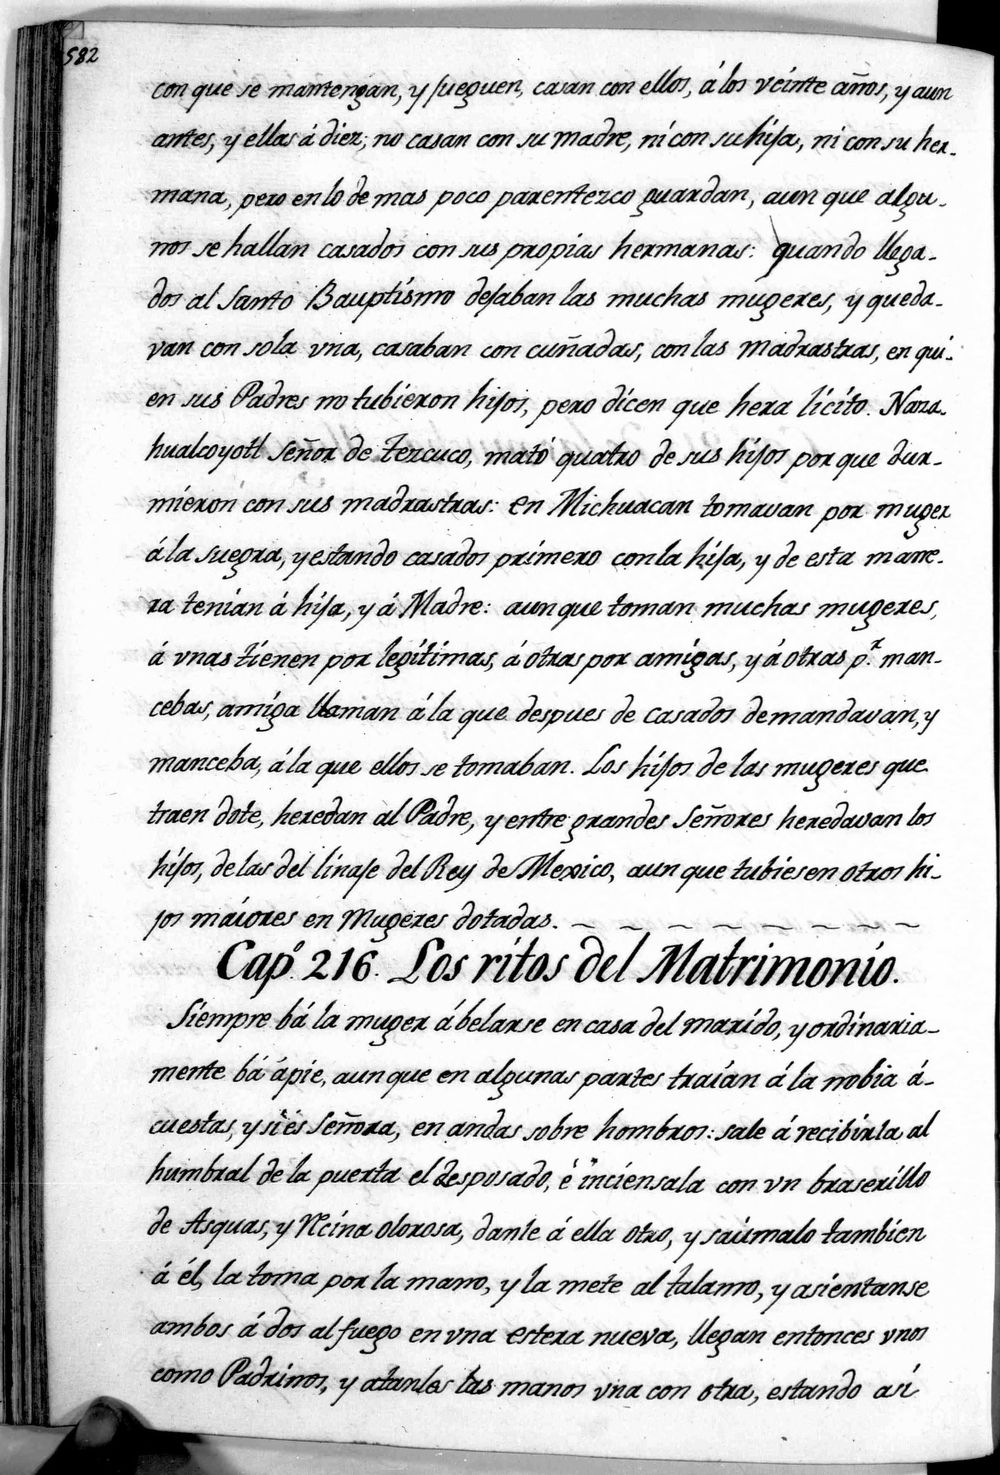 582
con que se mantengan, y jueguen, casan con ellos, á los veinte años, y aun
antes, y ellas á diez; no casan con su madre, ni con su hija, ni con su her-
mana, pero en lo de mas poco parentezco guardan, aun que algu-
nos se hallan casados con sus propias hermanas: quando llega-
dos al Santo Bauptismo dejaban las muchas mugeres, y queda-
van con sola vna, casaban con cuñadas, con las madrastras, en qui-
en sus Padres no tubieron hijos, pero dicen que hera licito. Neza-
hualcoyotl Señor de Tezcuco, mató quatro de sus hijos por que dur-
mieron con sus madrastras: en Michuacan tomavan por muger
á la suegra, y estando casados primero con la hija, y de esta mane-
ra tenian á hija, y á Madre: aun que toman muchas mugeres,
á vnas tienen por legitimas, á otras por amigas, y á otras p.r man-
cebas, amiga llaman á la que despues de casados demandavan, y
manceba, á la que ellos se tomaban. Los hijos de las mugeres que
traen dote, heredan al Padre, y entre grandes Señores heredavan los
hijos, de las del linaje del Rey de Mexico, aun que tubiesen otros hi-
jos maiores en Mugeres dotadas.
Capº 216. Los ritos del Matrimonio.
Siempre bá la muger á belarse en casa del marido, y ordinaria-
mente bá á pie, aun que en algunas partes traían á la nobia á-
cuestas, y si és Señora, en andas sobre hombros: sale á recibirla al
humbral de la puerta el desposado, é inciensala con vn braserillo
de Asquas, y Recina olorosa, danle á ella otro, y saúmalo tambien
á él, la toma por la mano, y la mete al talamo, y asientanse
ambos á dos al fuego en vna estera nueva, llegan entonces vnos
como Padrinos, y atanles las manos vna con otra, estando asi